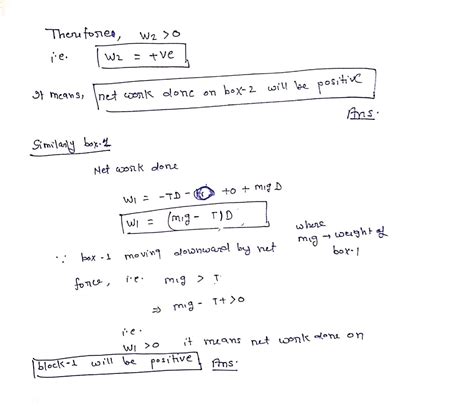 Therefores, W2 > 0
i.e. W2 = +ve
It means, net work done on box-2 will be positive
Ans.
Similarly box-1
Net work done
W1 = -TD - +0 + m1g D
W1 = (m1g - T)D
where
m1g → weight of
box-1
∵ box-1 moving downward by net
force, i.e. m1g > T
⇒ m1g - T+ > 0
i.e.
W1 > 0 it means net work done on
block-1 will be positive Ans.